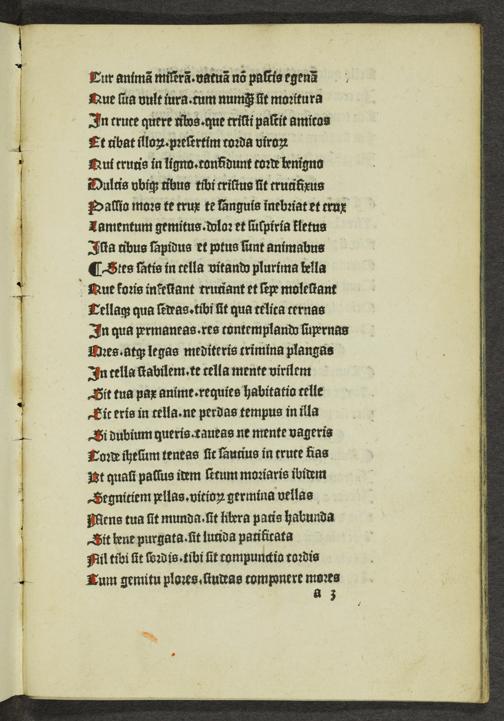 Cur animā miserā. vacuā nō pascis egenā
Que sua vult iura. cum numqꝫ sit moritura
In cruce quere cibos. que cristi pascit amicos
Et cibat illoꝝ. presertim corda viroꝝ
Qui crucis in ligno. confidunt corde benigno
Dulcis vbiqꝫ cibus tibi cristus sit crucifixus
Passio mors te crux te sanguis inebriat et crux
Lamentum gemitus. dolor et suspiria fletus
Ista cibus sapidus et potus sunt animabus
¶ Stes satis in cella vitando plurima bella
Que foris infestant cruciant et sepe molestant
Cellaqꝫ qua sedeas. tibi sit qua celica cernas
In qua ꝑmaneas. res contemplando supernas
Ores. atqꝫ legas mediteris crimina plangas
In cella stabilem. te cella mente virilem
Sit tua pax anime. requies habitatio celle
Sic eris in cella. ne perdas tempus in illa
Si dubium queris. caueas ne mente vageris
Corde ihesum teneas sic saucius in cruce fias
Vt quasi passus idem secum moriaris ibidem
Segniciem pellas. vicioꝝ germina vellas
Mens tua sit munda. sit libera pacis habunda
Sit bene purgata. sit lucida pacificata
Nil tibi sit sordis. tibi sit compunctio cordis
Cum gemitu plores. studeas componere mores
a 3